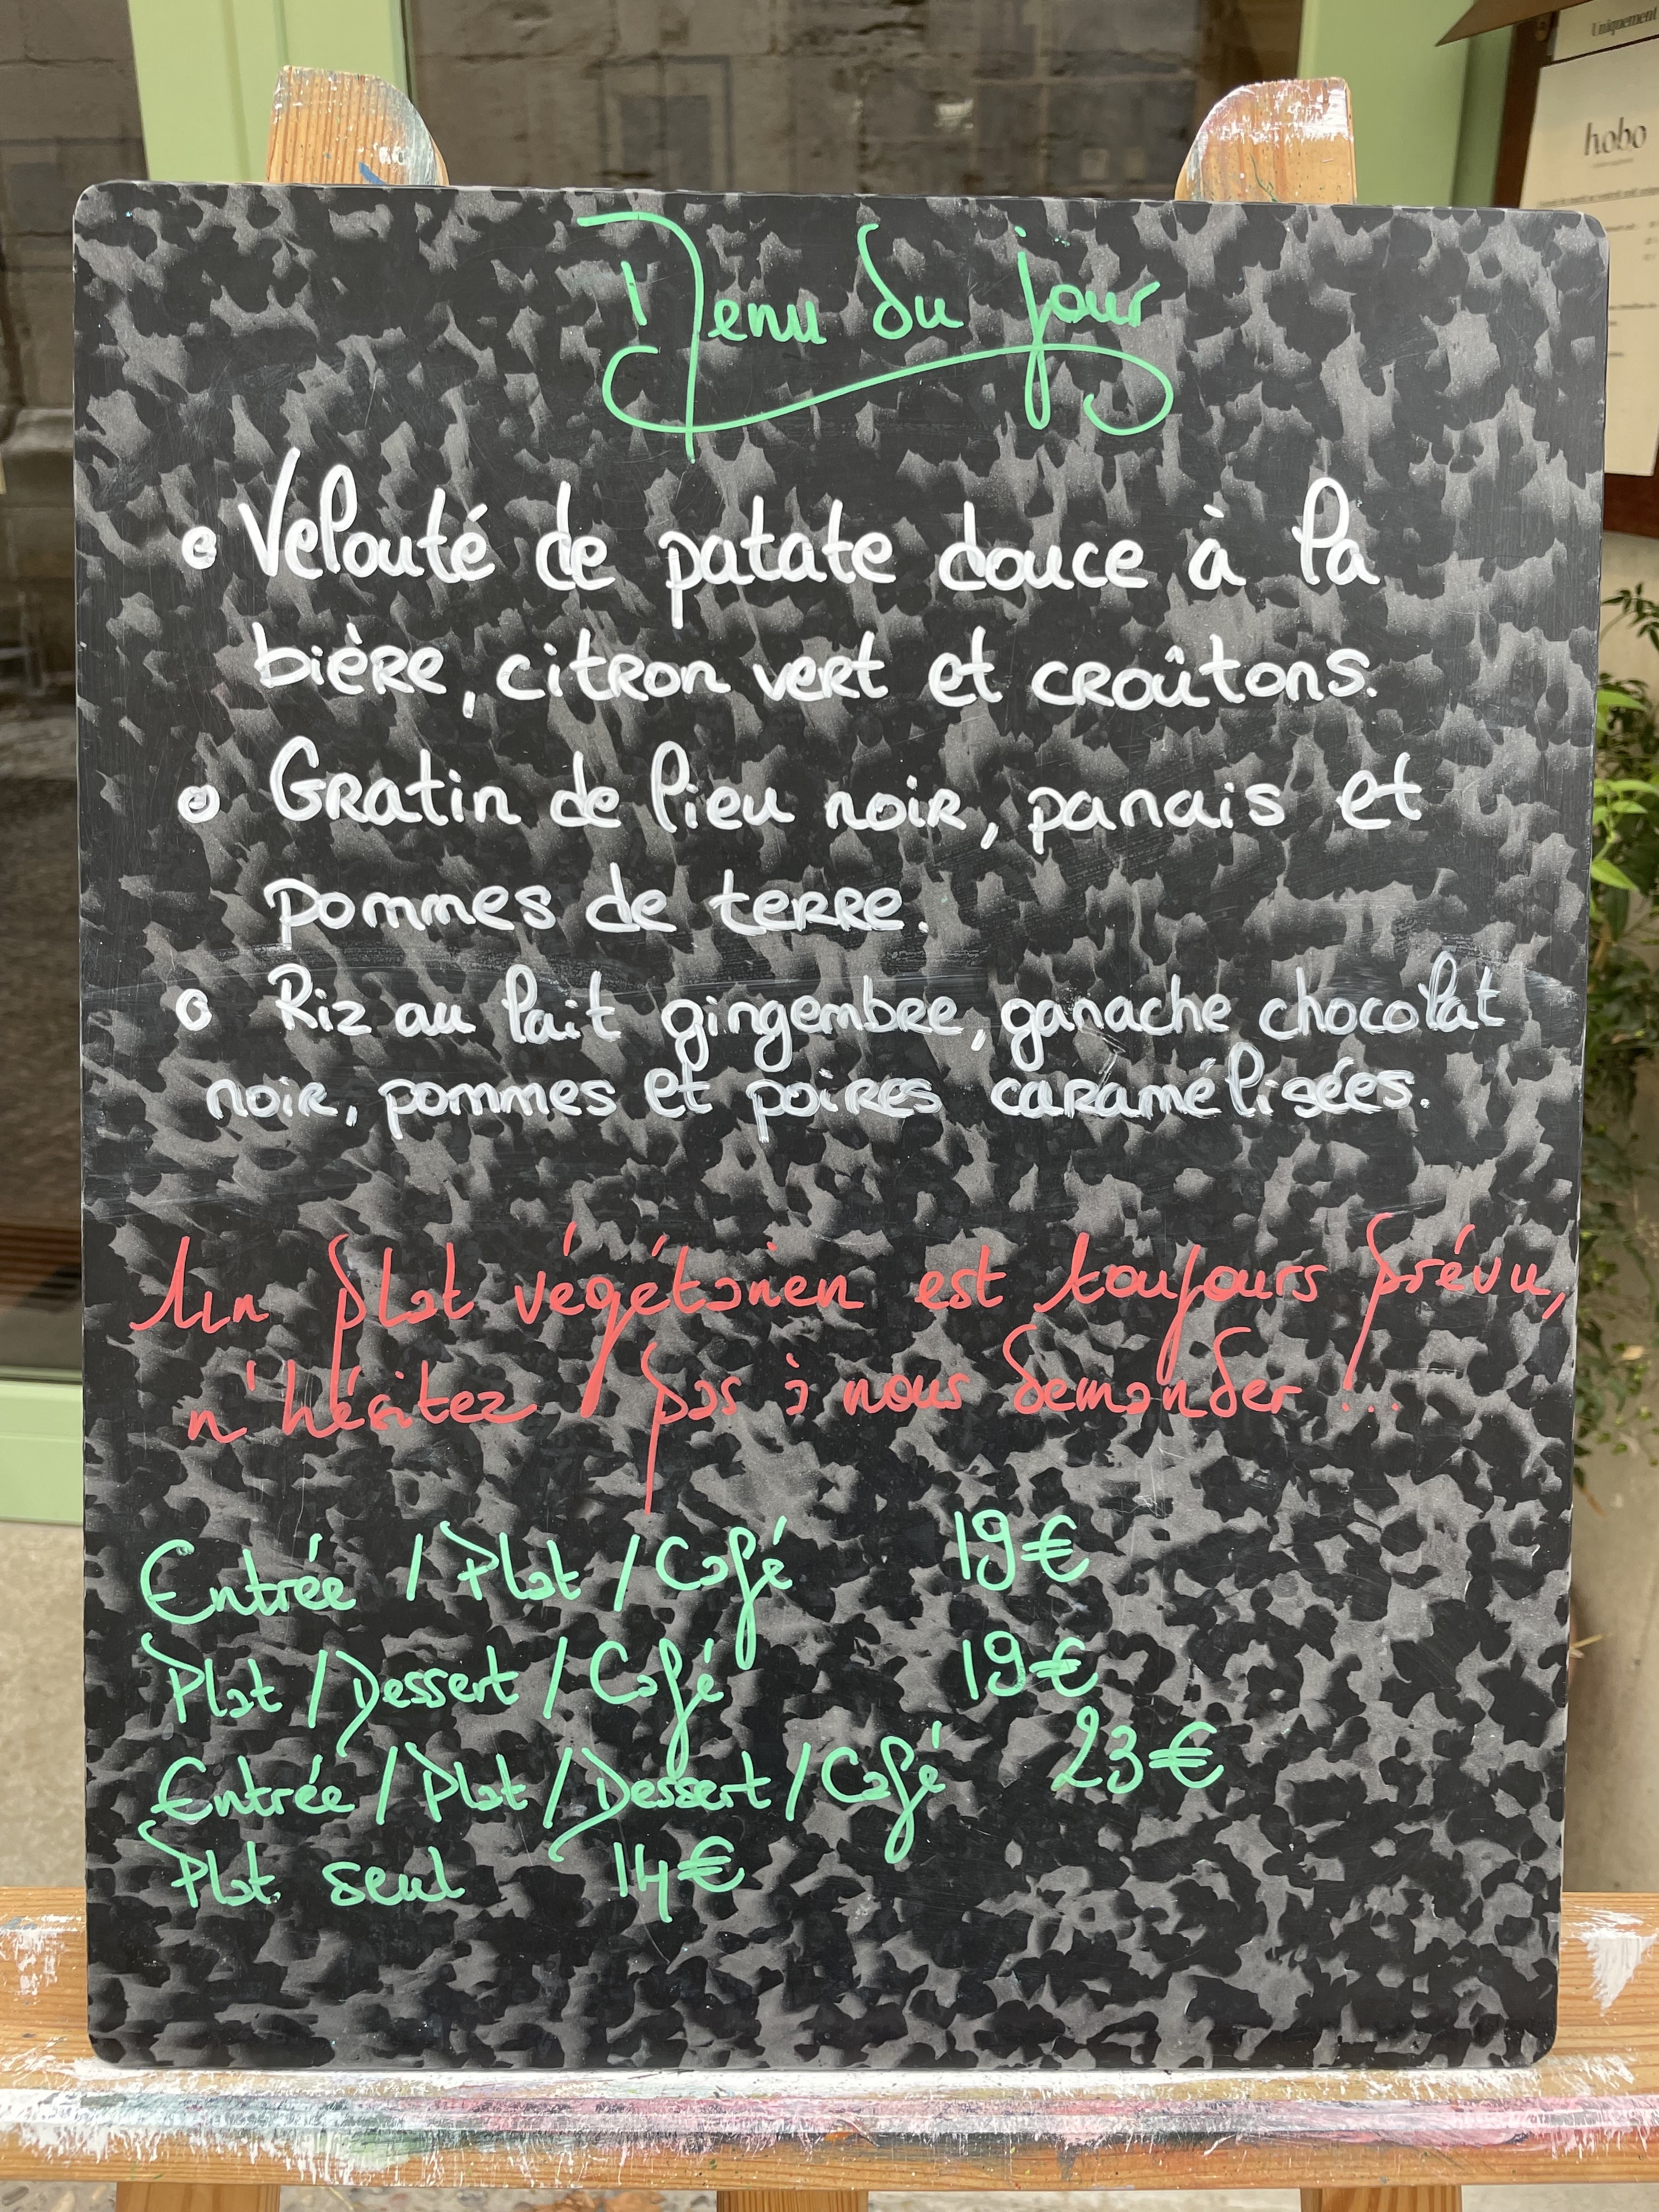 Uniquement
hobo
Menu du jour
Velouté de patate douce à la
bière, citron vert et croûtons.
Gratin de lieu noir, panais et
pommes de terre.
Riz au lait gingembre, ganache chocolat
noir, pommes et poires caramélisées.
Un plat végétarien est toujours prévu,
n'hésitez pas à nous demander !...
Entrée / Plat / Café 19€
Plat / Dessert / Café 19€
Entrée / Plat / Dessert / Café 23€
Plat seul 14€